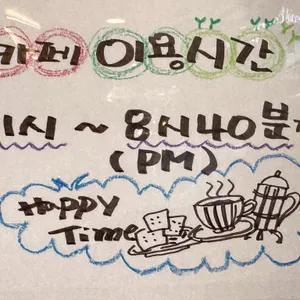 카페 이용시간
1시 ~ 8시40분
(PM)
Happy
Time